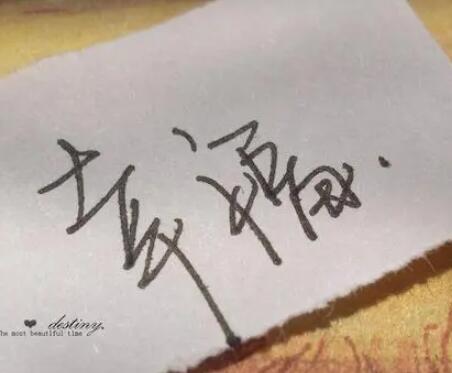 幸福.
❤ destiny.
he most beautiful time